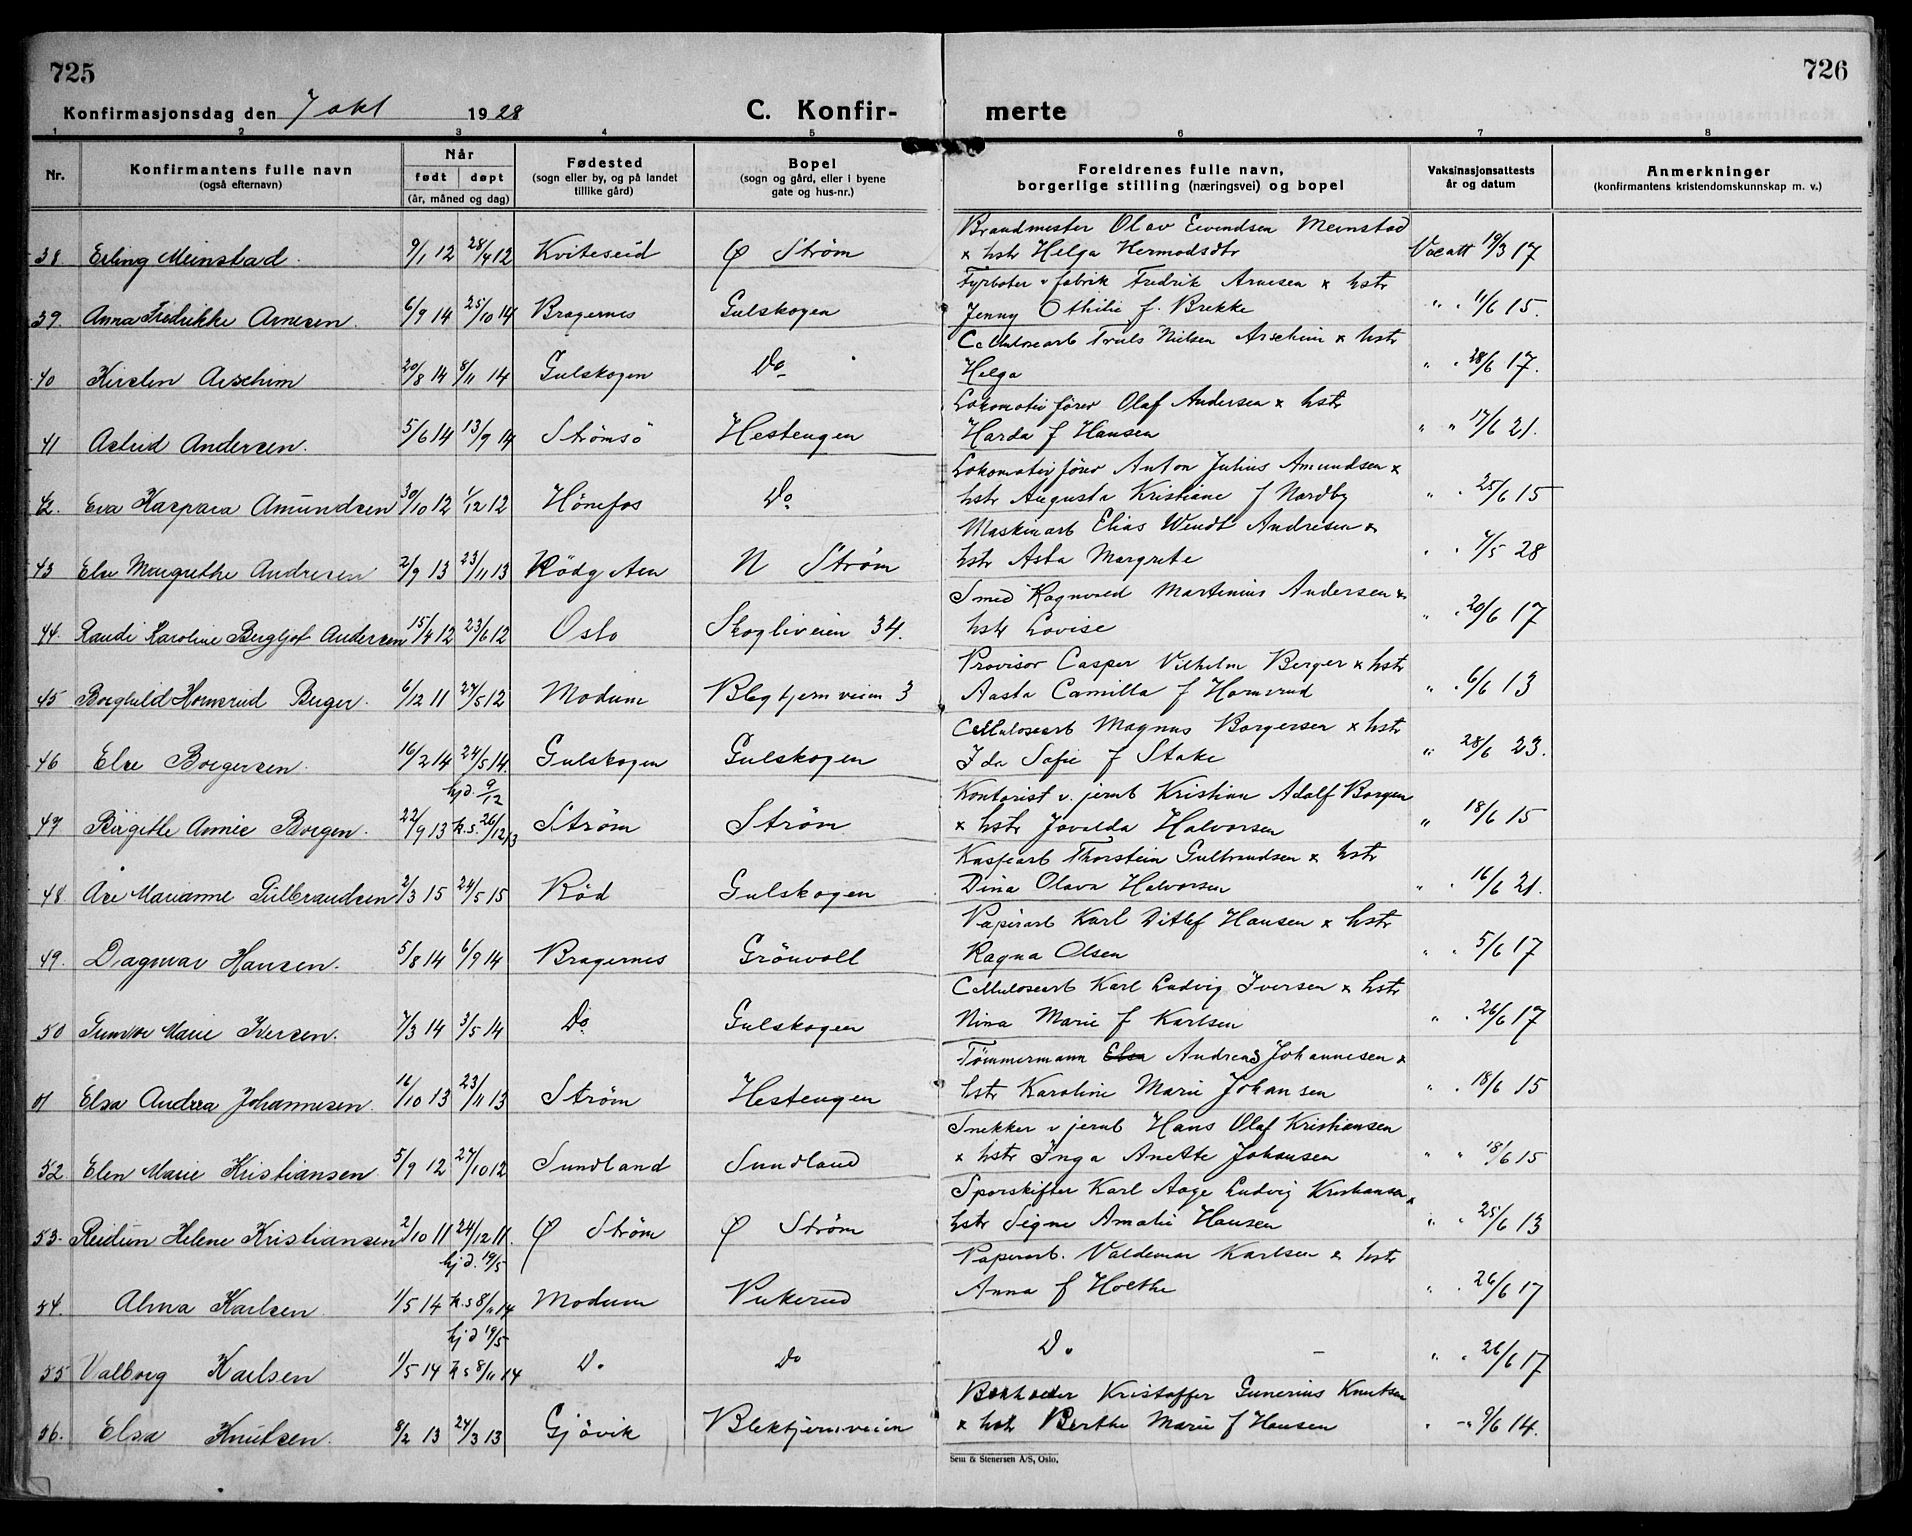 725
726
Konfirmasjonsdag den 7 okt 1928
C. Konfir- merte
1 2 3 4 5 6 7 8
Nr.
Konfirmantens fulle navn
(også efternavn)
Når
født døpt
(år, måned og dag)
Fødested
(sogn eller by, og på landet
tillike gård)
Bopel
(sogn og gård, eller i byene
gate og hus-nr.)
Foreldrenes fulle navn,
borgerlige stilling (næringsvei) og bopel
Vaksinasjonsattests
år og datum
Anmerkninger
(konfirmantens kristendomskunnskap m. v.)
Brandmester Olav Eivendsen Meinstad
38 Erling Meinstad. 9/1 12 28/4 12 Kviteseid Ø Strøm x hstr Helga Hermodsdtr Vacatt 19/3 17
Fyrbøter v fabrik Fredrik Arnesen x hstr
39. Anna Fredrikke Arnesen. 6/9 14 25/10 14 Bragernes Gulskogen Jenny Othilie f. Brekke " " 11/6 15.
Cellulosearb Truls Nielsen Arschim x hstr
40 Kirsten Arschim 20/8 14 8/11 14 Gulskogen Do Helga " " 28/6 17.
Lokomotivfører Olaf Andersen x hstr
41 Astrid Andersen. 5/6 14 13/9 14 Strømsö Hestengen Harda f Hansen " " 17/6 21.
Lokomotivfører Anton Julius Amundsen x
42. Eva Kaspara Amundsen 30/10 12 1/12 12 Hönefos Do hstr Augusta Kristiane f Nordby " " 25/6 15
Maskinarb Elias Wendt Andresen x
43 Else Margrethe Andresen 2/9 13 23/11 13 N Strøm hstr Asta Margrete " " 4/5 28
Smed Ragnvald Martinius Andersen x
44. Randi Karoline Bergljot Andersen 15/4 12 23/6 12 Oslo Skogliveien 34. hstr Lovise " " 20/6 17
Provisor Casper Vilhelm Berger x hstr
45 Borghild Homsrud Berger. 6/12 11 27/5 12 Modum Blegtjernveien 3 Aasta Camilla f Homsrud " " 6/6 13
Celluloseart Magnus Borgersen x hstr
46 Else Borgersen. 16/2 14 24/5 14. Gulskogen Gulskogen Ida Sofie f Stake " 28/6 23.
hjd. 9/12 Kontorist v. jernb Kristian Adolf Borgen
47 Birgitte Annie Borgen. 22/9 13 k.s. 26/12 13 Strøm Strøm x hstr Jovalda Halvorsen " 18/6 15
Thorstein Gulbrandsen x hstr
48 Åse Marianne Gulbrandsen 2/3 15 24/5 15 Röd Gulskogen Dina Olava Halvorsen " " 16/6 21.
Papirarb Karl Ditlef Hansen x hstr
49. Dagmar Hansen. 5/8 14 6/9 14 Bragernes Grönvoll Ragna Olsen " " 5/6 17
Celluloseart Karl Ludvig Iversen x hstr
50 Marie Iversen. 7/3 14 3/5 14 Do Gulskogen Nina Marie f Karlsen " " 26/6 17
Tømmermann Elsa Andreas Johannesen x
51 Elsa Andrea Johannesen. 16/10 13 23/11 13 Strøm Hestengen hstr Karoline Marie Johansen " " 18/6 15
Snekker v jernb Hans Olaf Kristiansen
52. Elen Marie Kristiansen. 5/9 12 27/10 12 Sundland Sundland x hstr Inga Anette Johansen " " 18/6 15
Sporskifter Karl Aage Ludvig Kristiansen x
53. Reidun Helene Kristiansen 2/10 11 24/12 11. Ø Strøm Ø Strøm hstr Signe Amalie Hansen " " 25/6 13
hjd. 19/5 Papirarb. Valdemar Karlsen x hstr
54. Alma Karlsen 1/5 14 k.s 8/11 14 Modum Pukerud Anna f Holthe " " 26/6 17
hjd 19/5
55 Valborg Karlsen 1/5 14 k s 8/11 14 Do Do Do – " " 26/6 17
Kristoffer Gunerius Knutsen
56. Elsa Knutsen. 8/2 13 24/3 13 Gjövik Blektjernveien x hstr Berthe Marie f Hansen " -"- 9/6 14.
Sem & Stenersen A/S, Oslo.